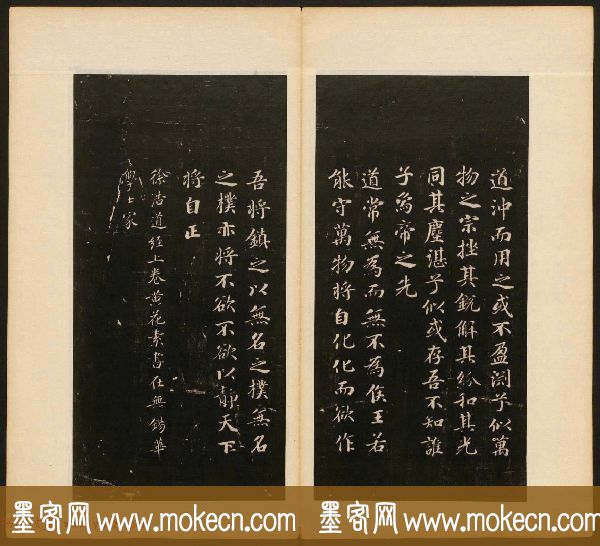 道沖而用之或不盈淵乎似萬
物之宗挫其銳解其紛和其光
同其塵湛乎似或存吾不知誰
子為帝之先
道常無為而無不為侯王若
能守萬物將自化化而欲作
吾將鎮之以無名之樸無名
之樸亦將不欲不欲以靜天下
將自正
徐浩道經上卷黃花素書在無錫華
學士家
墨客网 www.mokecn.com 墨客网 www.mokecn.com